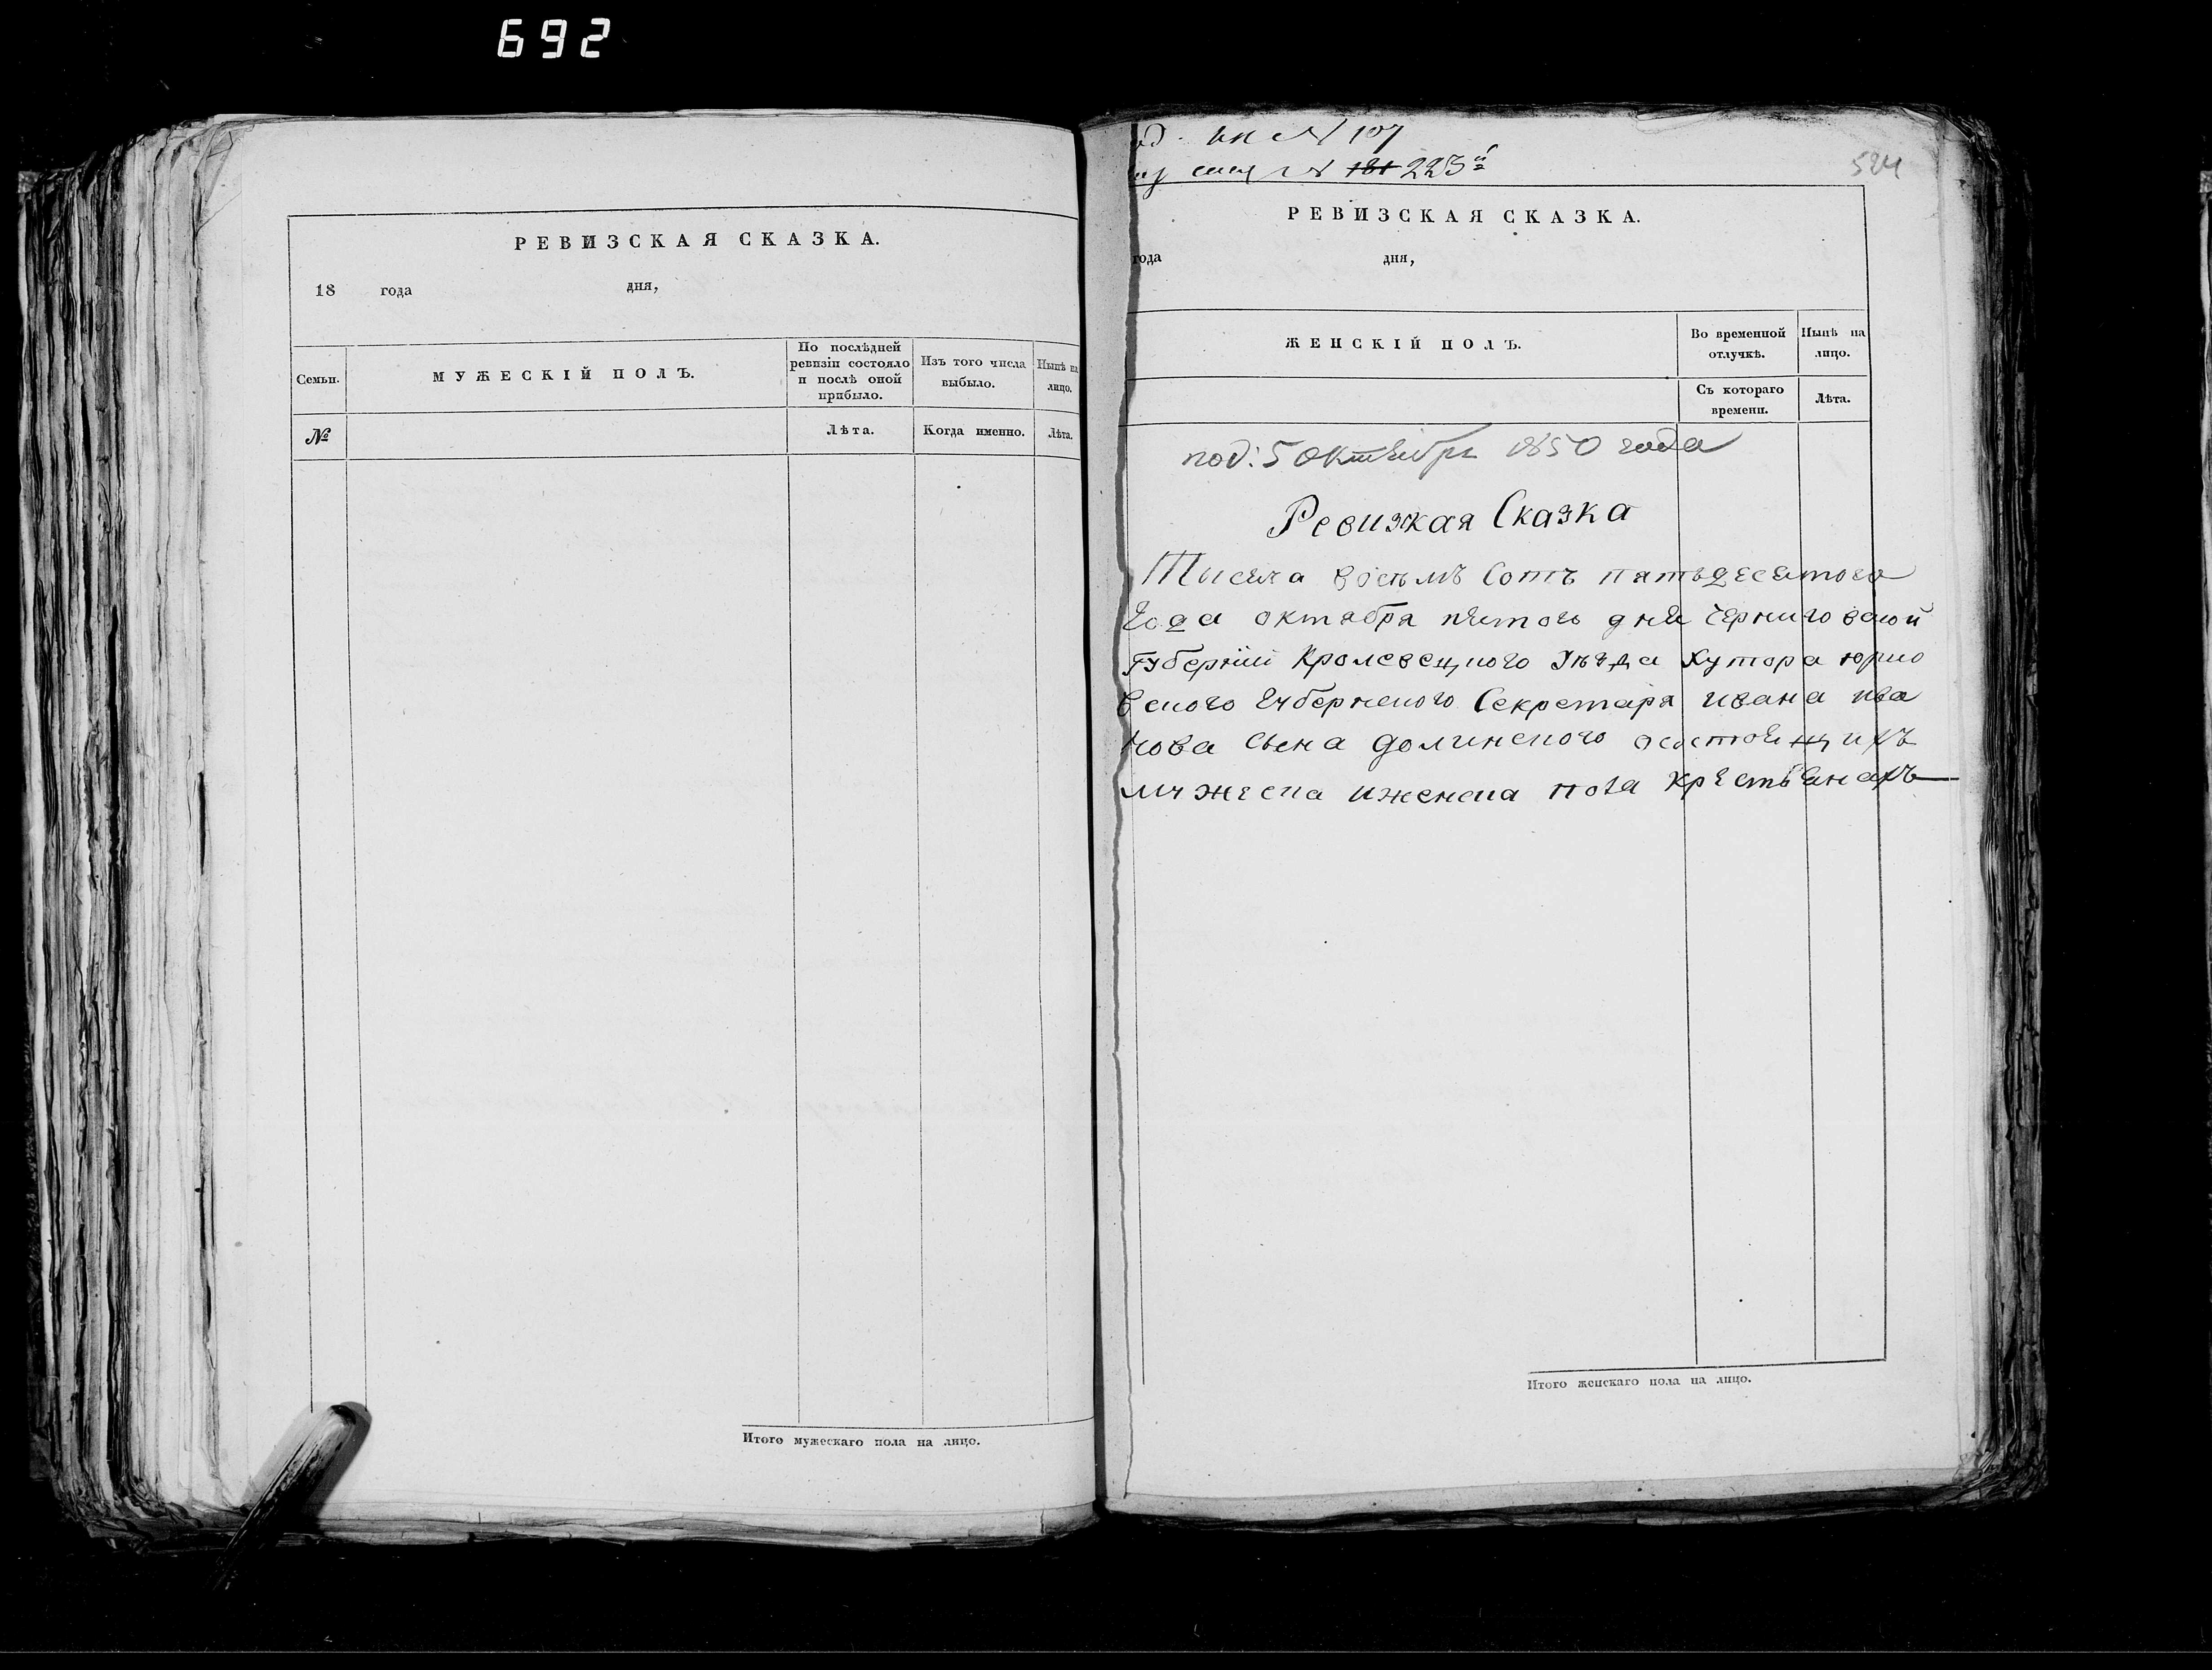 692
РЕВИЗСКАЯ СКАЗКА.
18 года дня,
Семьи.
МУЖЕСКІЙ ПОЛЪ.
По послѣдней ревизіи состояло и послѣ оной прибыло.
Изъ того числа выбыло.
Нынѣ на лицо.
№
Лѣта.
Когда именно.
Лѣта.
Итого мужескаго пола на лицо.
№ 107
№ 181 223й
524
РЕВИЗСКАЯ СКАЗКА.
года дня,
ЖЕНСКІЙ ПОЛЪ.
Во временной отлучкѣ.
Нынѣ на лицо.
Съ котораго времени.
Лѣта.
под: 5 октября 1850 года
Ревизкая Сказка
Тысяча восемъ Сотъ пятьдесятого
года октября пятого дня Черниговской
Губерніи Кролевецкого Уѣзда Хутора юрно
вского Губернского Секретаря ивана ива
нова сына долинского осостоящихъ
мужеска иженска пола крестьянахъ
Итого женскаго пола на лицо.